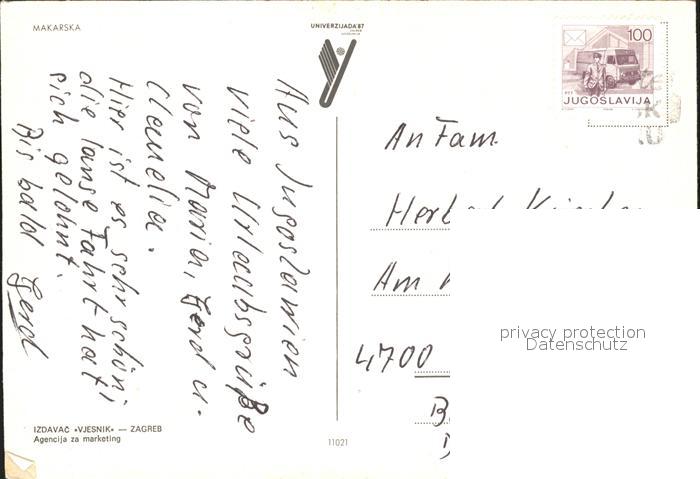 MAKARSKA
UNIVERZIJADA'87
ZAGREB
JUGOSLAVIJA
100
PTT
JUGOSLAVIJA
Aus Jugoslawien
viele Urlaubsgrüße
von Maria, Gerd u.
Claudia.
Hier ist es sehr schön,
die lange Fahrt hat
sich gelohnt.
Bis bald Gerd
An Fam.
Herb
Am
4700
privacy protection
Datenschutz
IZDAVAČ «VJESNIK» — ZAGREB
Agencija za marketing
11021